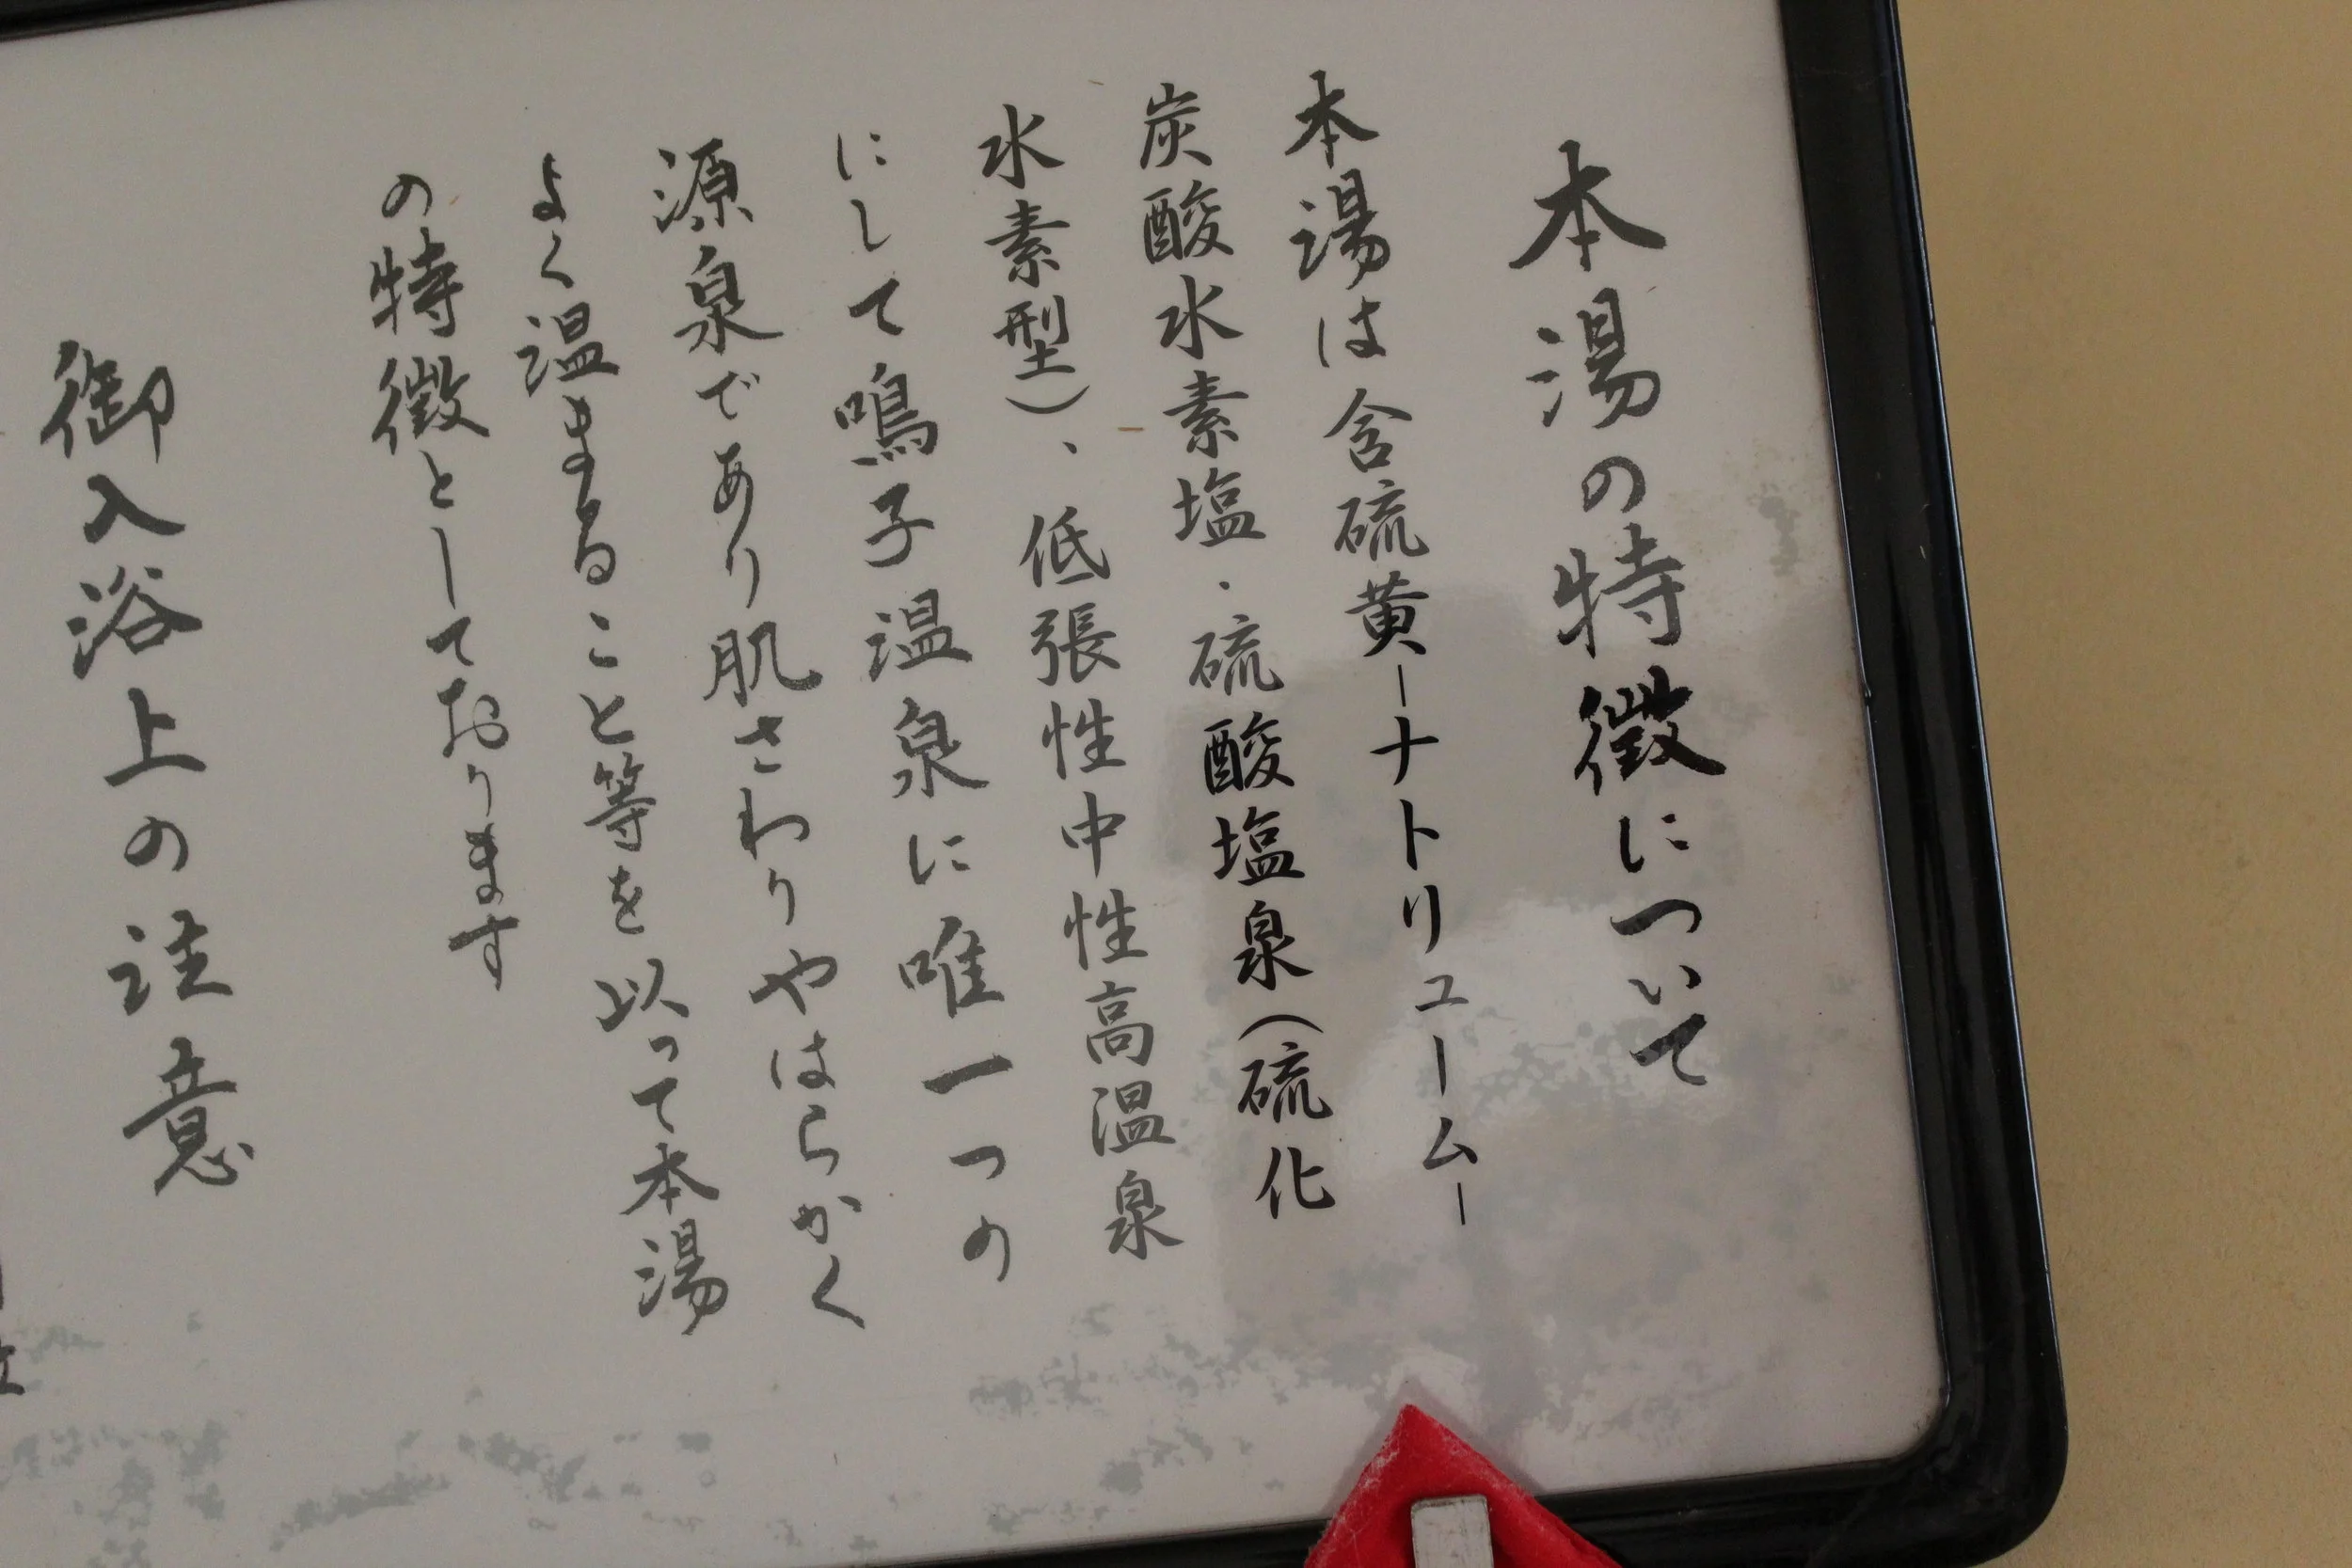 本湯の特徴について
本湯は含硫黄－ナトリューム－
炭酸水素塩・硫酸塩泉（硫化
水素型）、低張性中性高温泉
にして鳴子温泉に唯一つの
源泉であり肌さわりやはらかく
よく温まること等を以って本湯
の特徴としております
御入浴上の注意